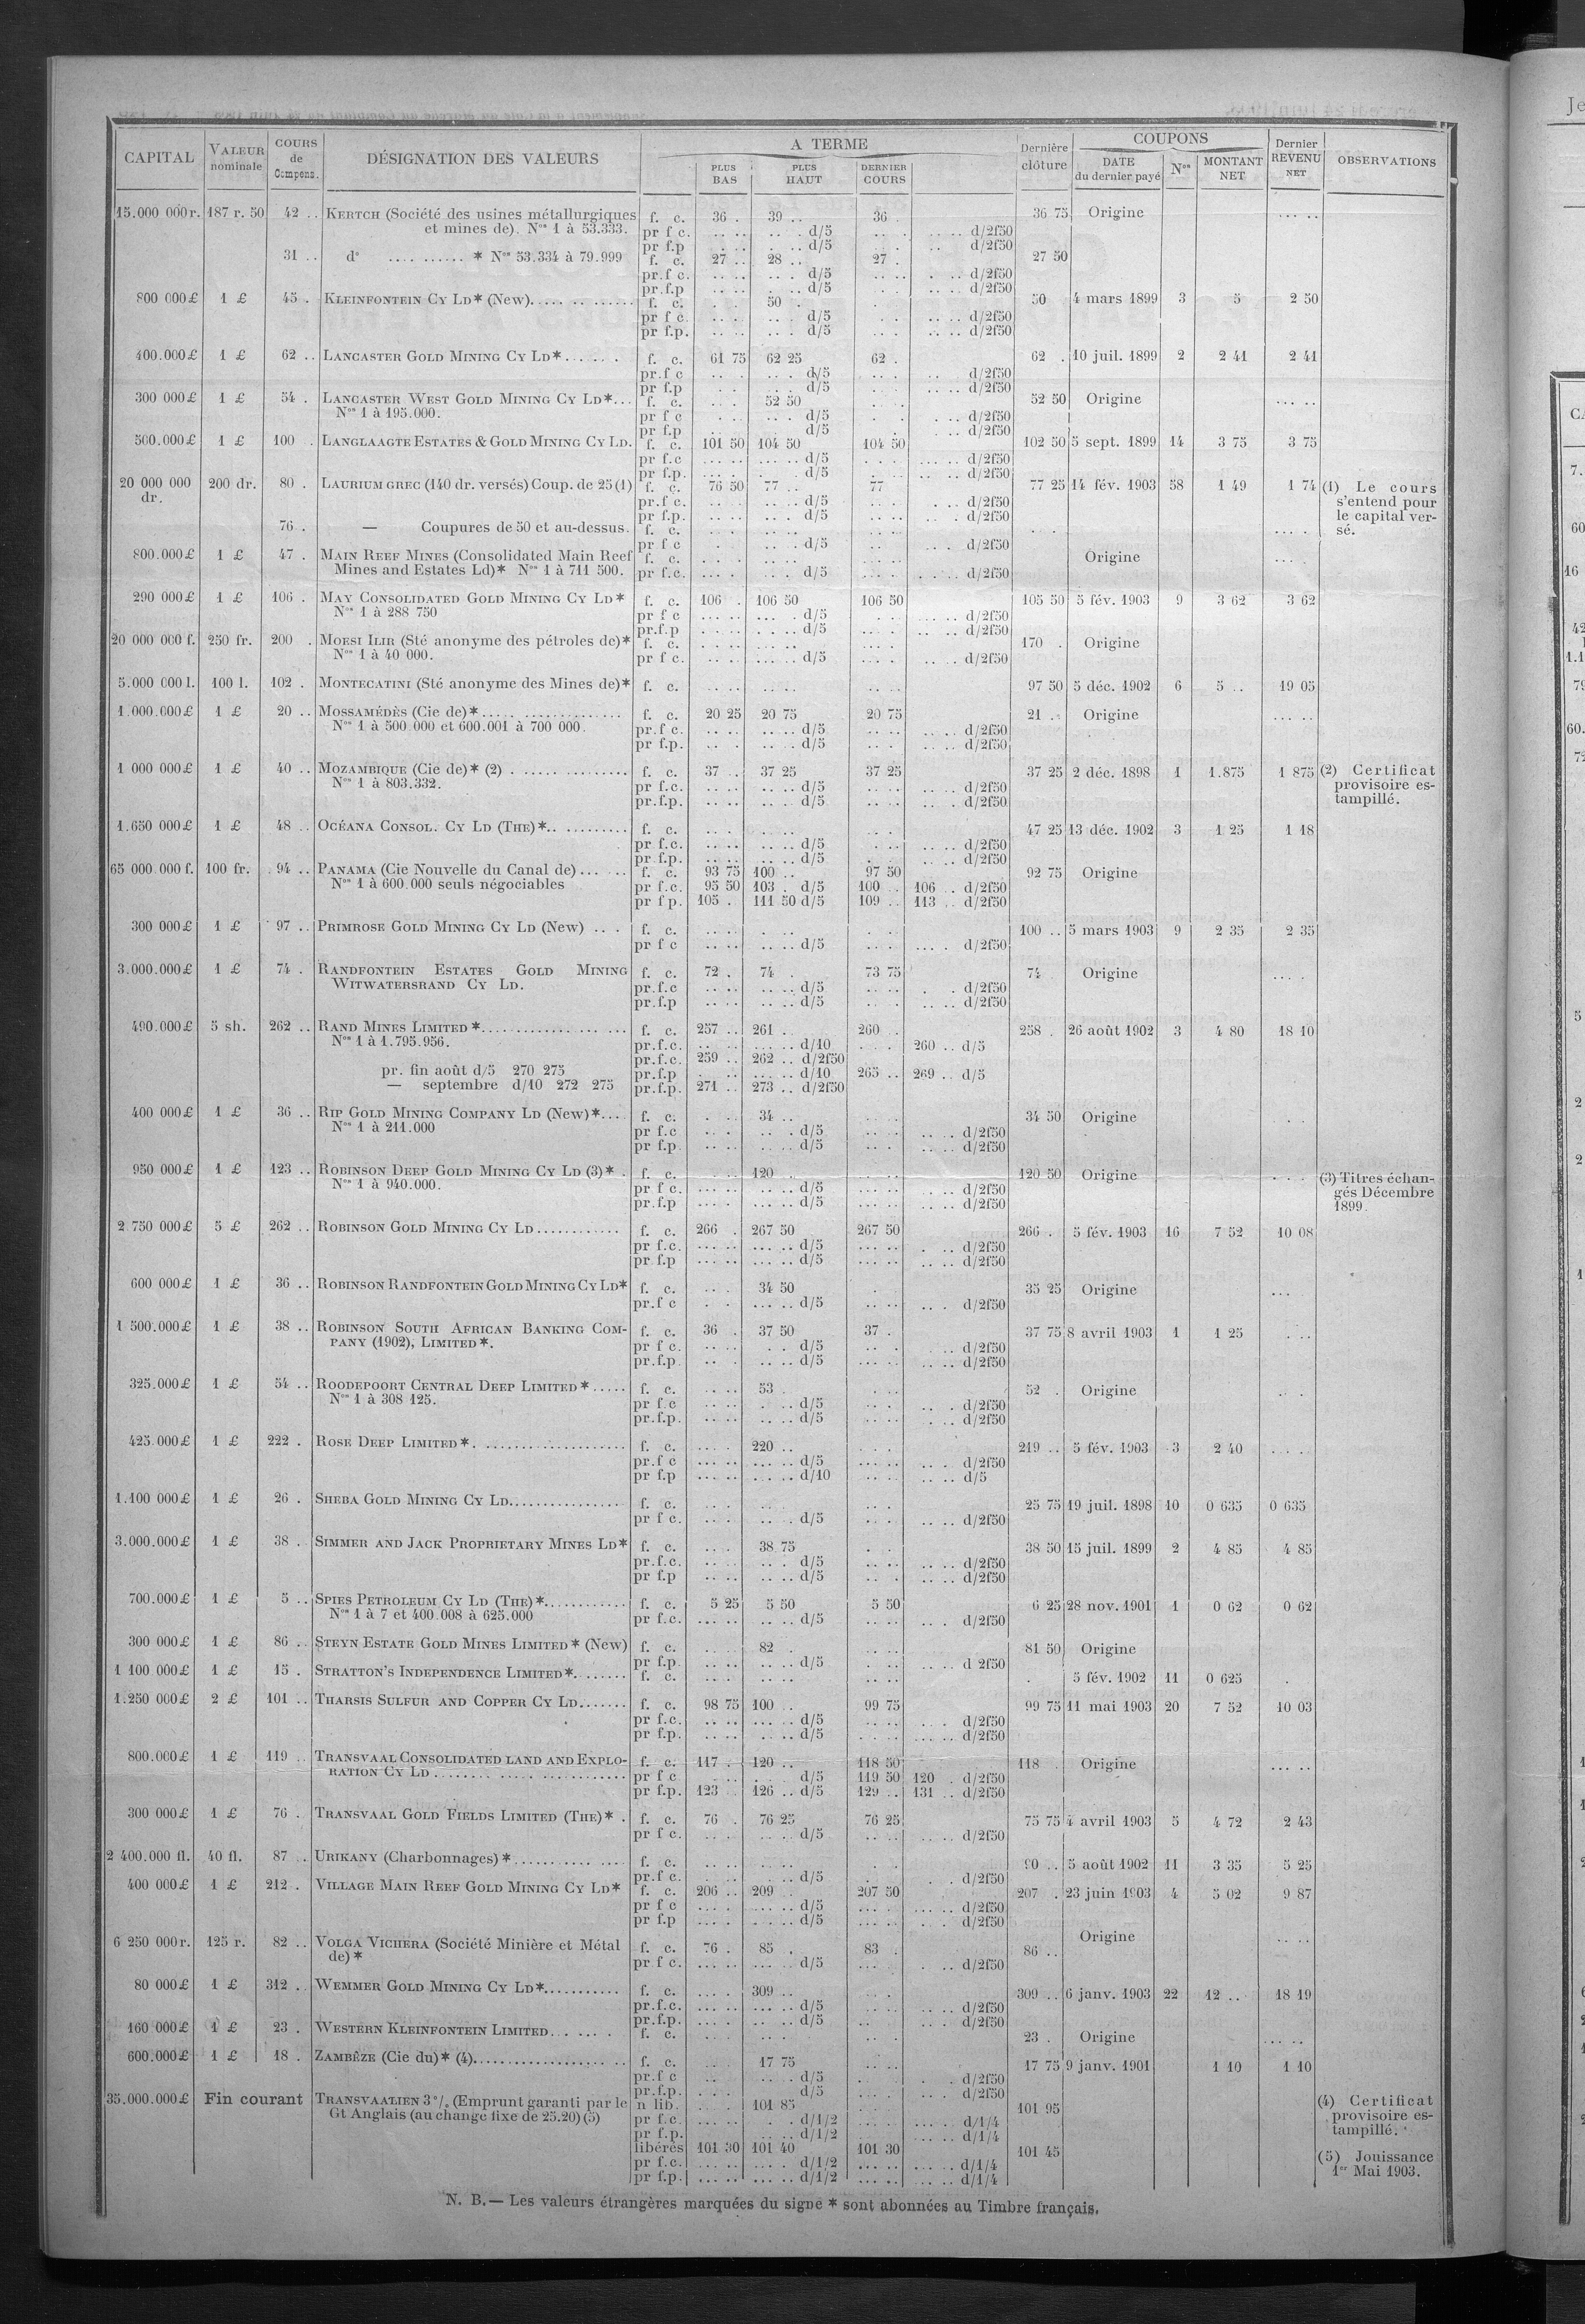 CAPITAL VALEUR nominale COURS de Compens. DÉSIGNATION DES VALEURS A TERME Dernière clôture COUPONS Dernier REVENU NET OBSERVATIONS
PLUS BAS PLUS HAUT DERNIER COURS DATE du dernier payé Nos MONTANT NET
15.000 000 r. 187 r. 50 42 .. KERTCH (Société des usines métallurgiques f. c. 36 . 39 .. 36 . 36 75 Origine ... ..
et mines de). Nos 1 à 53.333. pr f c. .. .. .. . d/5 .. . .. .. d/2f50
pr f.p .. . . .. d/5 . . .. d/2f50
31 .. do .... ......... * Nos 53.334 à 79.999 f. c. 27 .. 28 .. 27 . 27 50
pr.f c. .. .. d/5 .. .. . .. d/2f50
pr.f.p .. .. . .. d/5 .. . .. .. d/2f50
800 000 £ 1 £ 45 . KLEINFONTEIN CY LD* (New)..... .. ...... f. c. . . 50 . . 50 4 mars 1899 3 5 2 50
pr f c. .. .. .. . d/5 .. . .. .. d/2f50
pr f.p. .. .. .. . d/5 .. . .. .. d/2f50
400.000 £ 1 £ 62 .. LANCASTER GOLD MINING CY LD*...... . f. c. 61 75 62 25 62 . 62 . 10 juil. 1899 2 2 41 2 41
pr.f c .. . .. . d/5 .. . .. d/2f50
pr f.p . . . .. d/5 . . .. .. d/2f50
300 000 £ 1 £ 54 . LANCASTER WEST GOLD MINING CY LD*... f. c. .. . 52 50 . . 52 50 Origine ... ..
Nos 1 à 195.000. pr f c . .. .. . d/5 .. . . .. d/2f50
pr f.p .. . d/5 . . .. d/2f50
500.000 £ 1 £ 100 . LANGLAAGTE ESTATES & GOLD MINING CY LD. f. c. 101 50 104 50 104 50 102 50 5 sept. 1899 14 3 75 3 75
pr f.c ... .. ... .. d/5 . . . ... .. d/2f50
pr f.p. ... . . .. d/5 . . . ... .. d/2f50
20 000 000 dr. 200 dr. 80 . LAURIUM GREC (140 dr. versés) Coup. de 25 (1) f. c. 76 50 77 .. 77 77 25 14 fév. 1903 58 1 49 1 74 (1) Le cours
s'entend pour
le capital ver-
sé.
pr.f c. .. .. .. .. d/5 .. .. . .. d/2f50
pr f.p. .. .. .. .. d/5 .. .. .. . d/2f50
76 . — Coupures de 50 et au-dessus. f. c. . . .. .. .. .. . . ... .
pr f c . .. .. d/5 .. .. . d/2f50
800.000 £ 1 £ 47 . MAIN REEF MINES (Consolidated Main Reef f. c. . . . .. .. .. .. Origine ... .
Mines and Estates Ld)* Nos 1 à 711 500. pr f.c. ... . .. . d/5 .. .. .. .. d/2f50
290 000 £ 1 £ 106 . MAY CONSOLIDATED GOLD MINING CY LD* f. c. 106 . 106 50 106 50 105 50 5 fév. 1903 9 3 62 3 62
Nos 1 à 288 750 pr f c ... .. ... . d/5 ... . ... .. d/2f50
pr.f.p ... .. . .. . d/5 .. . .. .. d/2f50
20 000 000 f. 250 fr. 200 . MOESI ILIR (Sté anonyme des pétroles de)* f. c. . . .. ... .. ... .. 170 . Origine
Nos 1 à 40 000. pr f c. .. . ... .. d/5 ... . .. .. d/2f50
5.000 000 l. 100 l. 102 . MONTECATINI (Sté anonyme des Mines de)* f. c. .. .. .. .. .. .. 97 50 5 déc. 1902 6 5 .. 19 05
1.000.000 £ 1 £ 20 .. MOSSAMÉDÈS (Cie de)*..... .................. f. c. 20 25 20 75 20 75 21 .. Origine ... ..
Nos 1 à 500.000 et 600.001 à 700 000. pr.f c. .. .. .. .. d/5 .. . .. .. d/2f50
pr f.p. .. . .. .. d/5 .. . .. .. d/2f50
1 000 000 £ 1 £ 40 .. MOZAMBIQUE (Cie de)* (2) . ...... ............ f. c. 37 .. 37 25 37 25 37 25 2 déc. 1898 1 1.875 1 875 (2) Certificat
provisoire es-
tampillé.
Nos 1 à 803.332. pr f.c. .. .. .. .. d/5 .. .. .. .. d/2f50
pr.f.p. .. .. .. .. d/5 .. .. .. .. d/2f50
1.650 000 £ 1 £ 48 .. OCÉANA CONSOL. CY LD (THE)*.. ......... f. c. .. . . .. .. . 47 25 13 déc. 1902 3 1 25 1 18
pr f.c. .. .. .. .. d/5 .. .. .. .. d/2f50
pr f.p. .. .. .. .. d/5 . .. .. .. d/2f50
65 000.000 f. 100 fr. 94 .. PANAMA (Cie Nouvelle du Canal de)... ... f. c. 93 75 100 .. 97 50 92 75 Origine
Nos 1 à 600.000 seuls négociables pr f.c. 95 50 103 . d/5 100 .. 106 .. d/2f50
pr f p. 105 . 111 50 d/5 109 .. 113 .. d/2f50
300 000 £ 1 £ 97 .. PRIMROSE GOLD MINING CY LD (New) .. . f. c. .. .. . .. . .. 100 .. 5 mars 1903 9 2 35 2 35
pr f c .. .. .. .. d/5 .. . ... . d/2f50
3.000.000 £ 1 £ 74 . RANDFONTEIN ESTATES GOLD MINING f. c. 72 . 74 . 73 75 74 . Origine ... .
WITWATERSRAND CY LD. pr.f.c .. .. .. .. d/5 .. .. . . d/2f50
pr.f.p .. .. .. .. d/5 .. .. .. .. d/2f50
490.000 £ 5 sh. 262 .. RAND MINES LIMITED*................ ... ... f. c. 257 .. 261 . 260 . 258 . 26 août 1902 3 4 80 18 10
Nos 1 à 1.795.956. pr.f.c. .. .. ... .. d/10 ... . 260 .. d/5
pr.f.c. 259 .. 262 .. d/2f50
pr. fin août d/5 270 275 pr.f.p . .. ... .. d/10 265 .. 269 .. d/5
— septembre d/10 272 275 pr.f.p. 271 .. 273 .. d/2f50
400 000 £ 1 £ 36 .. RIP GOLD MINING COMPANY LD (New)*.... f. c. . .. 34 .. .. 34 50 Origine . .
Nos 1 à 211.000 pr f c .. . .. . d/5 .. . .. .. d/2f50
pr f.p. .. .. .. .. d/5 .. . .. .. d/2f50
950 000 £ 1 £ 123 .. ROBINSON DEEP GOLD MINING CY LD (3)* . f. c. .. . 120 .. . 120 50 Origine ... . (3) Titres échan-
gés Décembre
1899.
Nos 1 à 940.000. pr f c. ... .. .. .. d/5 ... .. .. .. d/2f50
pr f.p ... .. ... .. d/5 ... .. .. .. d/2f50
2.750 000 £ 5 £ 262 .. ROBINSON GOLD MINING CY LD............ f. c. 266 . 267 50 267 50 266 . 5 fév. 1903 16 7 52 10 08
pr f.c. ... .. ... .. d/5 ... .. . .. d/2f50
pr f.p ... .. ... .. d/5 ... .. .. .. d/2f50
600 000 £ 1 £ 36 .. ROBINSON RANDFONTEIN GOLD MINING CY LD* f. c. .. . 34 50 . 35 25 Origine ...
pr.f c . . ... .. d/5 .. .. .. . d/2f50
1 500.000 £ 1 £ 38 .. ROBINSON SOUTH AFRICAN BANKING COM- f. c. 36 . 37 50 37 . 37 75 8 avril 1903 1 1 25 . ..
PANY (1902), LIMITED*. pr f c. .. .. . . d/5 .. . .. d/2f50
pr.f.p. .. . .. .. d/5 ... .. .. .. d/2f50
325.000 £ 1 £ 54 .. ROODEPOORT CENTRAL DEEP LIMITED*..... f. c. .. .. 53 . . .. 52 . Origine . .
Nos 1 à 308 125. pr f c .. .. . .. d/5 .. .. .. . d/2f50
pr.f.p. .. .. . .. d/5 .. .. . .. d/2f50
425.000 £ 1 £ 222 . ROSE DEEP LIMITED*. .................... f. c. ... . 220 .. . . . 219 .. 5 fév. 1903 3 2 40 ... .
pr.f c ... .. ... .. d/5 ... .. .. . d/2f50
pr f.p ... .. ... .. d/10 .. .. .. .. d/5
1.100 000 £ 1 £ 26 . SHEBA GOLD MINING CY LD................ f. c. .. . .. .. .. . 25 75 19 juil. 1898 10 0 635 0 635
pr f c. .. . .. . d/5 .. . .. .. d/2f50
3.000.000 £ 1 £ 38 . SIMMER AND JACK PROPRIETARY MINES LD* f. c. .. . 38 75 . . 38 50 15 juil. 1899 2 4 85 4 85
pr.f.c. .. .. .. . d/5 .. . .. .. d/2f50
pr f.p .. .. .. .. d/5 .. .. .. .. d/2f50
700.000 £ 1 £ 5 .. SPIES PETROLEUM CY LD (THE)*............ f. c. 5 25 5 50 5 50 6 25 28 nov. 1901 1 0 62 0 62
Nos 1 à 7 et 400.008 à 625.000 pr f.c. ... .. .. .. d/5 .. .. .. . d/2f50
300 000 £ 1 £ 86 .. STEYN ESTATE GOLD MINES LIMITED* (New) f. c. .. . 82 . .. .. 81 50 Origine
pr f.p. .. .. .. .. d/5 . .. .. .. d 2f50
1 100 000 £ 1 £ 15 . STRATTON'S INDEPENDENCE LIMITED*....... f. c. .. .. .. .. .. .. . 5 fév. 1902 11 0 625 .
1.250 000 £ 2 £ 101 .. THARSIS SULFUR AND COPPER CY LD....... f. c. 98 75 100 .. 99 75 99 75 11 mai 1903 20 7 52 10 03
pr f.c. .. .. ... .. d/5 .. .. .. . d/2f50
pr f.p. .. .. .. .. d/5 . .. .. .. d/2f50
800.000 £ 1 £ 119 .. TRANSVAAL CONSOLIDATED LAND AND EXPLO- f. c. 117 . 120 .. 118 50 118 . Origine ... ..
RATION CY LD ........ ..... ............. pr f c . .. . . d/5 119 50 120 . d/2f50
pr f.p. 123 .. 126 .. d/5 129 .. 131 .. d/2f50
300 000 £ 1 £ 76 . TRANSVAAL GOLD FIELDS LIMITED (THE)* . f. c. 76 . 76 25 76 25 75 75 4 avril 1903 5 4 72 2 43
pr f c. .. . .. .. d/5 .. .. .. .. d/2f50
2 400.000 fl. 40 fl. 87 .. URIKANY (Charbonnages)*........... .... f. c. .. .. .. .. . . 90 .. 5 août 1902 11 3 35 5 25
pr.f c. . .. .. .. d/5 . . . d/2f50
400 000 £ 1 £ 212 . VILLAGE MAIN REEF GOLD MINING CY LD* f. c. 206 .. 209 . 207 50 207 . 23 juin 1903 4 5 02 9 87
pr f c ... . ... .. d/5 ... . ... .. d/2f50
pr f.p ... . . .. d/5 ... .. .. . d/2f50
6 250 000 r. 125 r. 82 .. VOLGA VICHERA (Société Minière et Métal f. c. 76 . 85 . 83 . 86 .. Origine .. ..
de)* pr f c. ... .. ... .. d/5 ... . . .. d/2f50
80 000 £ 1 £ 312 .. WEMMER GOLD MINING CY LD*........... f. c. ... . 309 .. .. . 309 .. 6 janv. 1903 22 12 .. 18 19
pr.f.c. ... .. ... .. d/5 ... .. .. .. d/2f50
pr.f.p. ... .. ... .. d/5 .. . .. d/2f50
160 000 £ 1 £ 23 . WESTERN KLEINFONTEIN LIMITED...... . f. c. .. .. .. .. .. . 23 . Origine ... ..
600.000 £ 1 £ 18 . ZAMBÈZE (Cie du)* (4)................... .. f. c. .. . 17 75 .. .. 17 75 9 janv. 1901 1 10 1 10
pr.f c .. . .. .. d/5 .. .. . . d/2f50
pr.f.p. .. . d/5 .. .. .. d/2f50
35.000.000 £ Fin courant TRANSVAALIEN 3 % (Emprunt garanti par le n lib. .. . 101 85 .. . 101 95 (4) Certificat
provisoire es-
tampillé.
Gt Anglais (au change fixe de 25.20) (5) pr f.c. ... .. . . d/1/2 ... . ... .. d/1/4
pr f.p. .. .. d/1/2 ... .. d/1/4
libérés 101 30 101 40 101 30 101 45 (5) Jouissance
1er Mai 1903.
pr f.c. ... .. ... . d/1/2 ... .. ... .. d/1/4
pr f.p. ... .. ... .. d/1/2 ... .. ... .. d/1/4
N. B.— Les valeurs étrangères marquées du signe * sont abonnées au Timbre français.